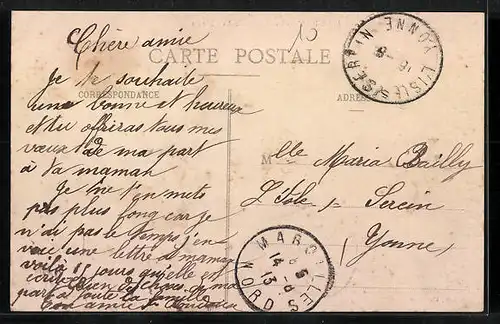 Chère amie
CARTE POSTALE
CORRESPONDANCE
Je te souhaite
une bonne et heureuse
et tu offriras tous mes
vœux de ma part
à ta maman
Je ne t'en mets
pas plus long car je
n'ai pas le temps j'en
voie une lettre de maman
voilà 11 jours qu'elle est
écrite bien des choses de ma
part à toute la famille
Ton amie
10
ADRESSE
Mlle Maria Bailly
L'Isle s/ Serein
(Yonne)
L'ISLE S/ SEREIN YONNE
MAROILLES
14-8
13
NORD